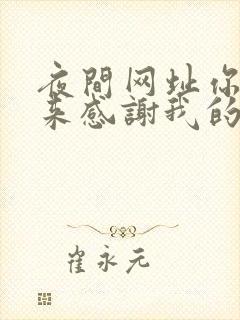 夜間网址你
来感謝我的
崔永元